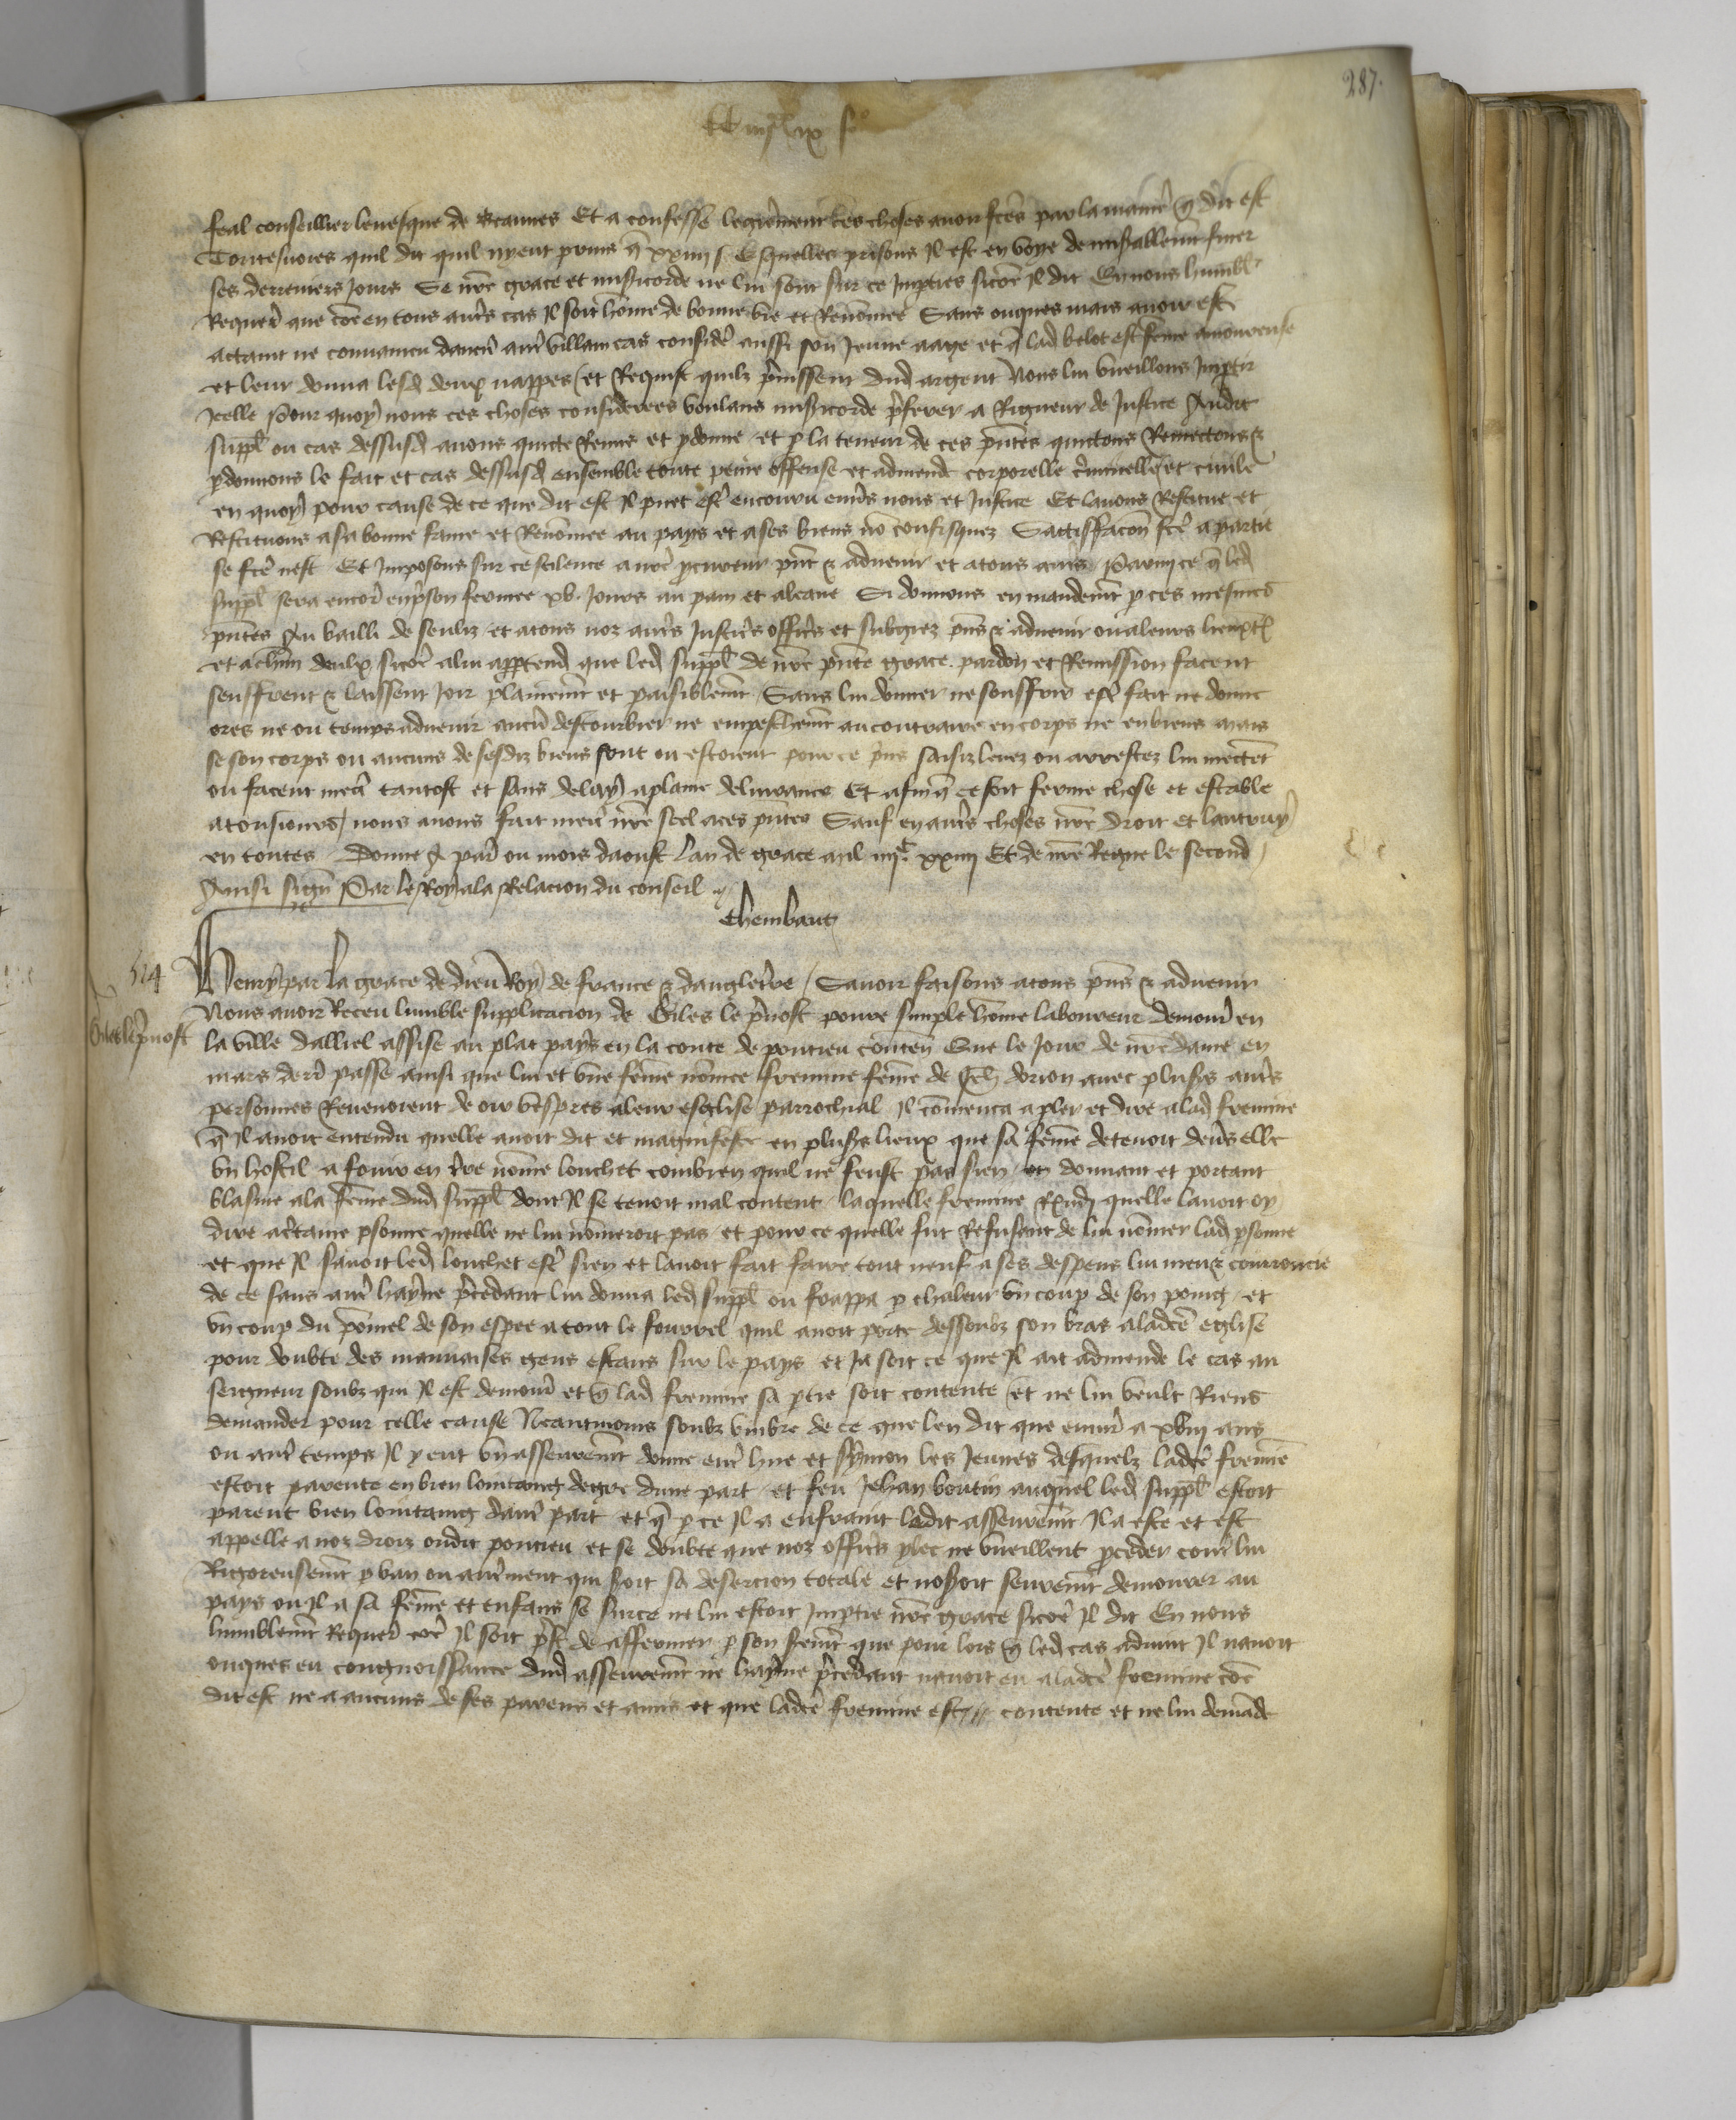 287.
feal conseillier levesque de Beauvez Et a confesse legierement les choses avoir fctes par la maniere q dit est
Toutesvoies quil dit quil nyeut prins q xxiiii s Esquelles prisons Il est en voye de miserablemt finer
ses derreniers Jours Se nre grace et misericorde ne lui sont sur ce Imparties sicoe Il dit En nous humblt
Requerant que coe en tous autres cas Il soit home de bonne vie et Renomee Sans onques mais avoir este
actaint ne convaincu daucun autre villain cas consideré aussi son Jeune aage et q lad belot est feme amoureuse
et leur donna lesd deux nappes et Requist quilz preinssent dud argent Nous lui vueillons Impartir
Icelle Pour quoy nous ces choses considerees voulans misericorde preferer a Rigueur de Justice Audit
suppl ou cas dessusd avons quicte Remis et pdonne et p la teneur de ces pntes quictons Remectons &
pdonnons le fait et cas dessusd ensemble toute peine offense et admende corporelle criminelle et civile
en quoy pour cause de ce que dit est Il puet estre encouru envers nous et Justice Et lavons Restitue et
Restituons a sa bonne fame et Renomee au pays et a ses biens no confisquez Sattisfacon fcte a partie
se fcte nest Et Imposons sur ce scilence a nre procureur pnt & advenir et a tous autres Parmi ce q led
suppl sera encores en prison fermee xv. Jours au pain et a leaue Si donnons en mandemt p ces mesmes
pntes Au bailli de senliz et a tous noz autres Justiciers officiers et subgiez pns & advenir ou a leurs lieuxtes
et a chun deulx sicoe a lui apptend que led suppl de nre pnte grace pardon et Remission facent
seuffrent & laissent Joir plainemt et paisiblemt Sans lui donner ne souffrir estre fait ne donne
ores ne ou temps advenir aucun destourbier ne empeschemt au contraire en corps ne en biens mais
se son corps ou aucuns de sesdiz biens sont ou estoient pour ce prins saisiz levez ou arrestez lui mectent
ou facent mectre tantost et sans delay a plaine delivrance Et afin q ce soit ferme chose et estable
a tousiours nous avons fait mectre nre seel a ces pntes Sauf en autres choses nre droit et lautruy
en toutes Donne a paris ou mois daoust Lan de grace mil iiiic xxiiii Et de nre Regne le second
Ainsi signe Par le Roy a la Relacion du conseil
Thembaut
514
Giles le prevost
Henry par la grace de dieu Roy de france & dangleterre Savoir faisons a tous pns & advenir
Nous avoir Receu lumble supplicacion de Giles le prevost povre simple home laboureur demourant en
la ville dalliel assise au plat pays en la conte de pontieu contenant Que le Jour de nre dame en
mars derrain passe ainsi que lui et une feme nomee fremine feme de Jeh dorion avec pluss autres
personnes Revenoient de oir vespres a leur esglise parrochial Il comenca a pler et dire a lad fremine
q Il avoit entendu quelle avoit dit et magnifeste en pluss lieux que sa feme detenoit devers elle
un hostil a fouir en terre nome louchet combien quil ne feust pas sien en donnant et portant
blasme a la feme dud suppl dont Il se tenoit mal content laquelle fremine Respondi quelle lavoit oy
dire a certaine psonne quelle ne lui nomeroit pas et pour ce quelle fut Refusant de lui nomer lad psonne
et que Il savoit led louchet estre sien et lavoit fait faire tout neuf a ses despens lui meu & courroucie
de ce sans autre hayne precedant lui donna led suppl ou frappa p chaleur un coup de son poing et
un coup du pomel de son espee a tout le fourrel quil avoit porte dessoubz son bras a ladcte eglise
pour doubte des mauvaises gens estans sur le pays et Ja soit ce que Il ait admende le cas au
seigneur soubz qui Il est demourant et q lad fremine sa ptie soit contente et ne lui veult Riens
demander pour celle cause Neantmoins soubz umbre de ce que len dit que environ a xviii ans
ou autre temps Il y eut un asseuremt donne entre hue et Symon les Jeunes desquelz ladcte fremine
estoit parente en bien lointaing degre dune part et feu Jehan boutin auquel led suppl estoit
parent bien lointaing dautre part et q p ce Il a enfraint ledit asseuremt Il a este et est
appelle a noz droiz oudit pontieu et se doubte que noz officiers ylec ne vueillent proceder contre lui
Rigoreusemt p ban ou autrement qui seroit sa desercion totale et noseroit seuremt demourer au
pays ou Il a sa feme et enfans se sur ce ne lui estoit Impartie nre grace sicoe Il dit En nous
humblemt Requerant coe Il soit prest de affermer p son sermt que pour lors q led cas advint Il navoit
onques eu congnoissance dud asseuremt ne hayne precedant navoit eu a ladcte fremine coe
dit est ne a aucuns de ses parens et amis et que ladcte fremine est contente et ne lui demande